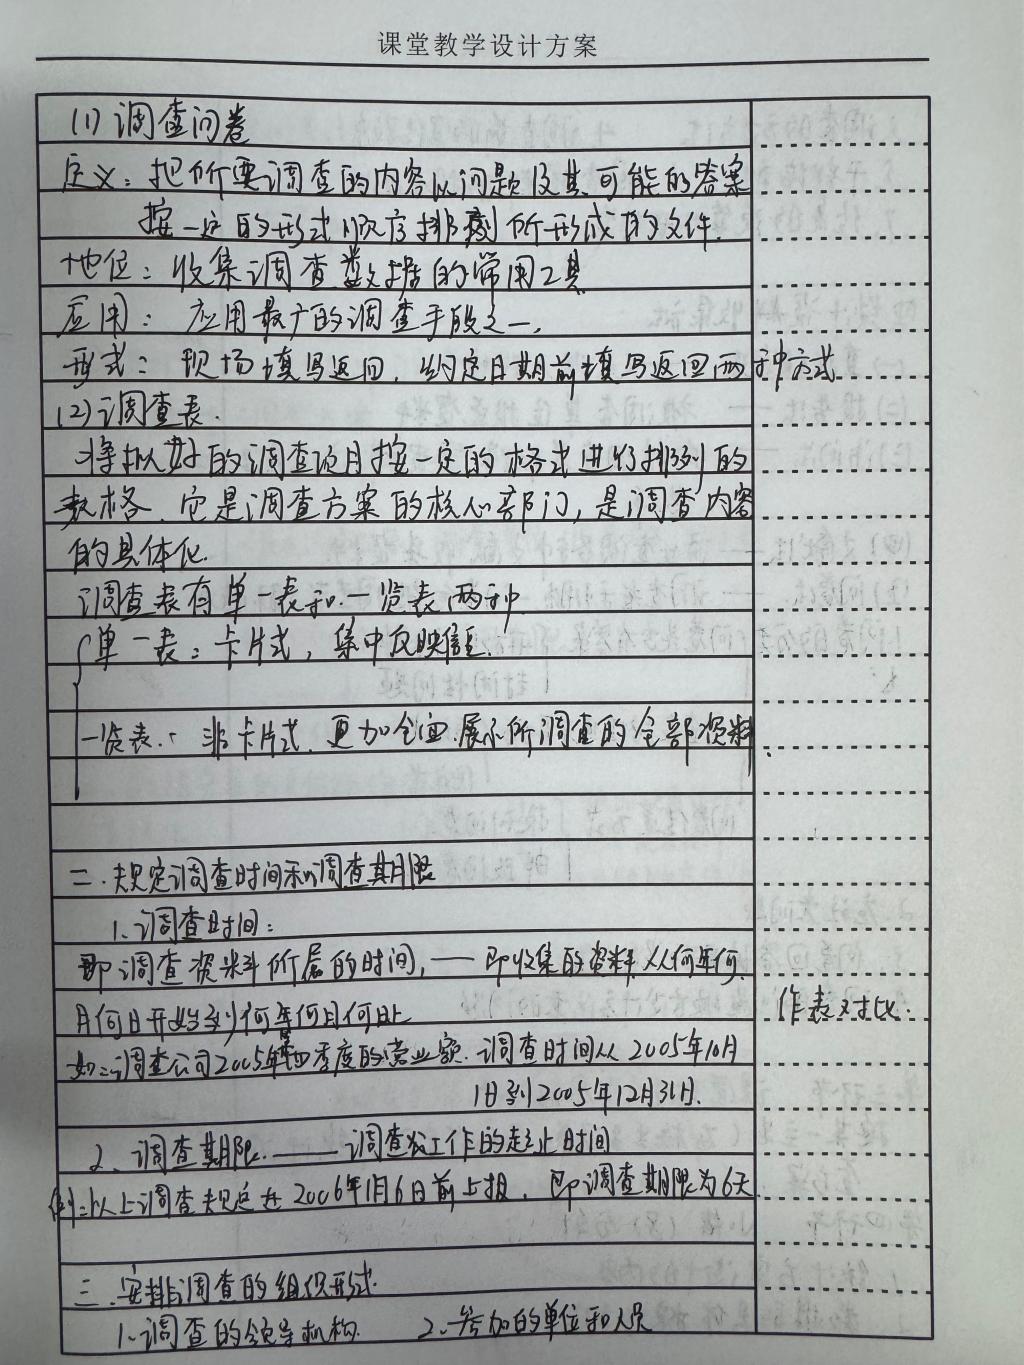 课堂教学设计方案
(1) 调查问卷
定义：把所要调查的内容以问题及其可能的答案
按一定的形式顺序排列所形成的文件.
地位：收集调查数据的常用工具
应用：应用最广的调查手段之一.
形式：现场填写返回，约定日期前填写返回两种方式
(2) 调查表.
将拟好的调查项目按一定的格式进行排列的
表格、它是调查方案的核心部门，是调查内容
的具体化.
调查表有单一表和一览表两种
单一表：卡片式，集中反映信.
一览表： 非卡片式、更加全面展示所调查的全部资料.
二.规定调查时间和调查期限
1、调查时间：
即调查资料所属的时间，—— 即收集的资料从何年何
月何日开始到何年何月何日止
作表对比.
如：调查公司2005年第四季度的营业额.调查时间从 2005年10月
1日到2005年12月31日.
2、调查期限.—— 调查工作的起止时间
例：以上调查规定在 2006年1月6日前上报，即调查期限为6天.
三.安排调查的组织形式.
1、调查的领导机构 2、参加的单位和人员